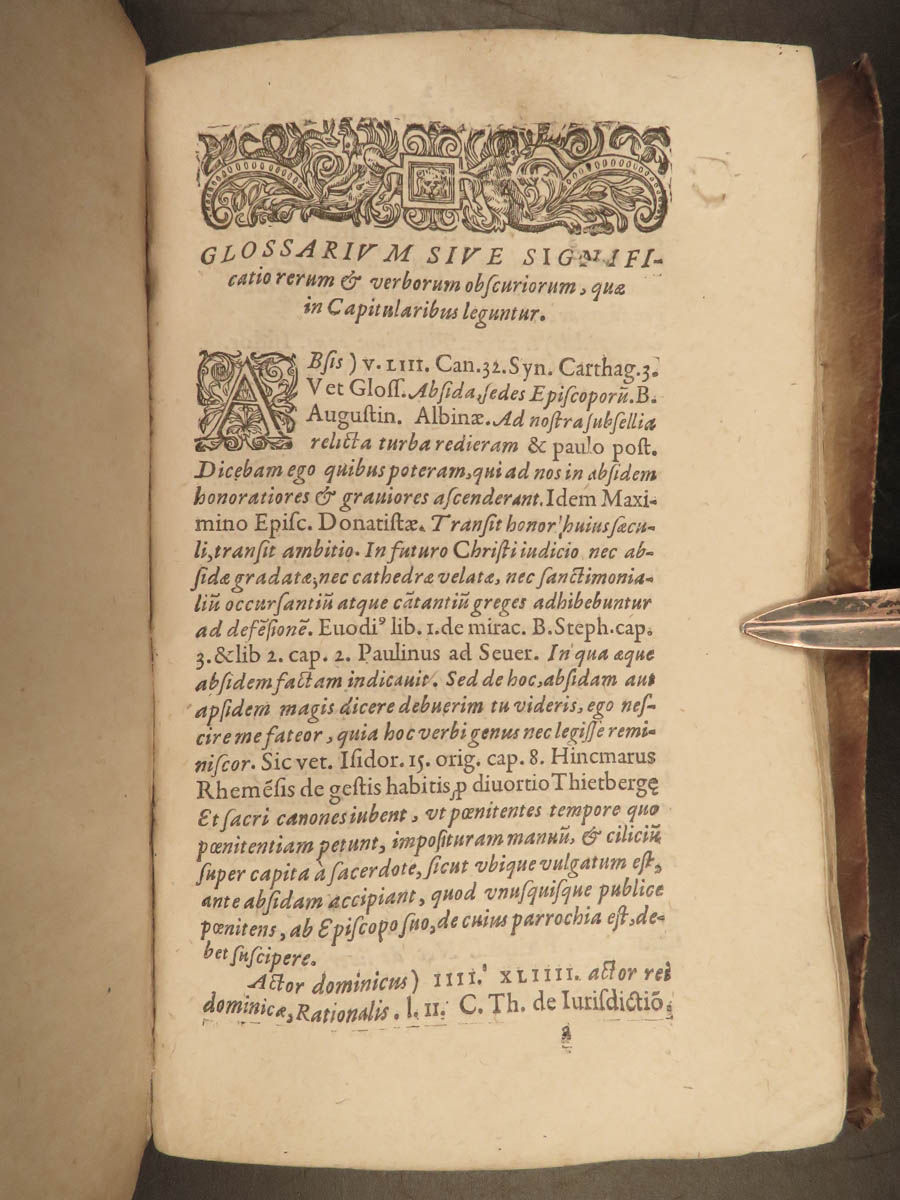 GLOSSARIVM SIVE SIGNIFI-
catio rerum & verborum obſcuriorum, quæ
in Capitularibus leguntur.
ABſis) V. LIII. Can. 32. Syn. Carthag. 3.
Vet Gloſſ. Abſida, ſedes Epiſcoporũ. B.
Auguſtin. Albinæ. Ad noſtra ſubſellia
relicta turba redieram & paulo poſt.
Dicebam ego quibus poteram, qui ad nos in abſidem
honoratiores & grauiores aſcenderant. Idem Maxi-
mino Epiſc. Donatiſtæ. Tranſit honor huius ſæcu-
li, tranſit ambitio. In futuro Chriſti iudicio nec ab-
ſidæ gradatæ, nec cathedræ velatæ, nec ſanctimonia-
liũ occurſantiũ atque cãtantiũ greges adhibebuntur
ad defẽſionẽ. Euodiꝰ lib. 1. de mirac. B. Steph. cap.
3. & lib 2. cap. 2. Paulinus ad Seuer. In qua æque
abſidem factam indicauit. Sed de hoc, abſidam aut
apſidem magis dicere debuerim tu videris, ego neſ-
cire me fateor, quia hoc verbi genus nec legiſſe remi-
niſcor. Sic vet. Iſidor. 15. orig. cap. 8. Hincmarus
Rhemẽſis de geſtis habitis ꝓ diuortio Thietbergę
Et ſacri canones iubent, vt pœnitentes tempore quo
pœnitentiam petunt, impoſituram manuũ, & ciliciũ
ſuper capita à ſacerdote, ſicut vbique vulgatum eſt,
ante abſidam accipiant, quod vnuſquiſque publice
pœnitens, ab Epiſcopo ſuo, de cuius parrochia eſt, de-
bet ſuſcipere.
Actor dominicus) IIII. XLIIII. actor rei
dominicæ, Rationalis. l. II. C. Th. de Iuriſdictiõ.